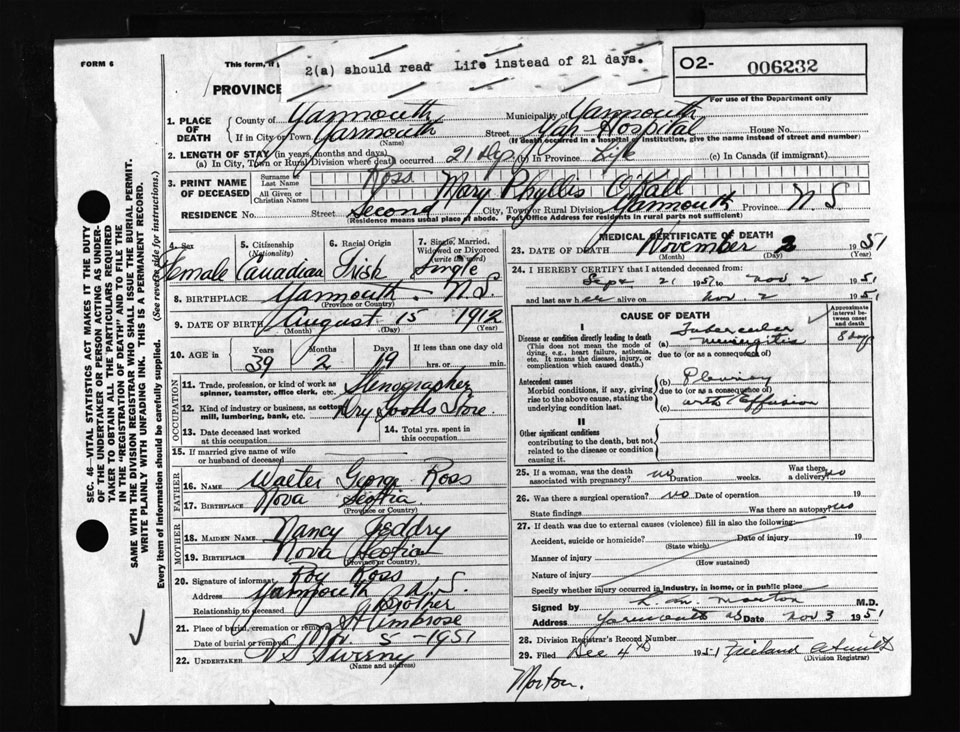 FORM 6
This form, if
2(a) should read Life instead of 21 days.
O2- 006232
For use of the Department only
PROVINCE
1. PLACE OF DEATH
County of Yarmouth Municipality of Yarmouth
If in City or Town Yarmouth Street Yar Hospital House No.
(Name) (If death occurred in a hospital or institution, give the name instead of street and number)
2. LENGTH OF STAY (in years, months and days)
(a) In City, Town or Rural Division where death occurred 21 Dys (b) In Province Life (c) In Canada (if immigrant)
3. PRINT NAME OF DECEASED
Surname or Last Name Ross
All Given or Christian Names Mary Phyllis O'Kall
RESIDENCE No. Street Second City, Town or Rural Division Yarmouth Province N.S.
(Residence means usual place of abode. Post Office Address for residents in rural parts not sufficient)
4. Sex Female
5. Citizenship (Nationality) Canadian
6. Racial Origin Irish
7. Single, Married, Widowed or Divorced (write the word) Single
8. BIRTHPLACE Yarmouth - N.S.
(Province or Country)
9. DATE OF BIRTH August 15 1912
(Month) (Day) (Year)
10. AGE in Years 39 Months 2 Days 19 If less than one day old hrs. or min.
OCCUPATION
11. Trade, profession, or kind of work as spinner, teamster, office clerk, etc. Stenographer
12. Kind of industry or business, as cotton mill, lumbering, bank, etc. Dry Goods Store
13. Date deceased last worked at this occupation
14. Total yrs. spent in this occupation
15. If married give name of wife or husband of deceased
FATHER
16. NAME Walter George Ross
17. BIRTHPLACE Nova Scotia
(Province or Country)
MOTHER
18. MAIDEN NAME Nancy Jeddry
19. BIRTHPLACE Nova Scotia
(Province or Country)
20. Signature of informant Roy Ross
Address Yarmouth N.S.
Relationship to deceased Brother
21. Place of burial, cremation or removal St Ambrose
Date of burial or removal Nov. 5 - 1951
22. UNDERTAKER V S Sweeny
(Name and address)
MEDICAL CERTIFICATE OF DEATH
23. DATE OF DEATH November 2 1951
(Month) (Day) (Year)
24. I HEREBY CERTIFY that I attended deceased from
Sept 21 1951 to Nov. 2 1951
and last saw her alive on Nov. 2 1951
CAUSE OF DEATH
Approximate interval between onset and death
I
Disease or condition directly leading to death
(This does not mean the mode of dying, e.g., heart failure, asthenia, etc. It means the disease, injury, or complication which caused death.)
(a) Tubercular Meningitis 8 days
due to (or as a consequence of)
Antecedent causes
Morbid conditions, if any, giving rise to the above cause, stating the underlying condition last.
(b) Pleurisy
due to (or as a consequence of)
(c) with effusion
II
Other significant conditions
contributing to the death, but not related to the disease or condition causing it.
25. If a woman, was the death associated with pregnancy? no Duration weeks. Was there a delivery? no
26. Was there a surgical operation? no Date of operation 19
State findings Was there an autopsy? no
27. If death was due to external causes (violence) fill in also the following:
Accident, suicide or homicide? Date of injury 19
(State which)
Manner of injury
(How sustained)
Nature of injury
Specify whether injury occurred in industry, in home, or in public place
Signed by L. M. Morton M.D.
Address Yarmouth NS Date Nov 3 1951
28. Division Registrar's Record Number
29. Filed Dec 4th 1951
(Division Registrar)
Morton.
SEC. 46—VITAL STATISTICS ACT MAKES IT THE DUTY OF THE UNDERTAKER OR PERSON ACTING AS UNDERTAKER TO OBTAIN ALL THE PARTICULARS REQUIRED IN THE "REGISTRATION OF DEATH" AND TO FILE THE SAME WITH THE DIVISION REGISTRAR WHO SHALL ISSUE THE BURIAL PERMIT.
WRITE PLAINLY WITH UNFADING INK. THIS IS A PERMANENT RECORD.
Every item of information should be carefully supplied. (See reverse side for instructions.)